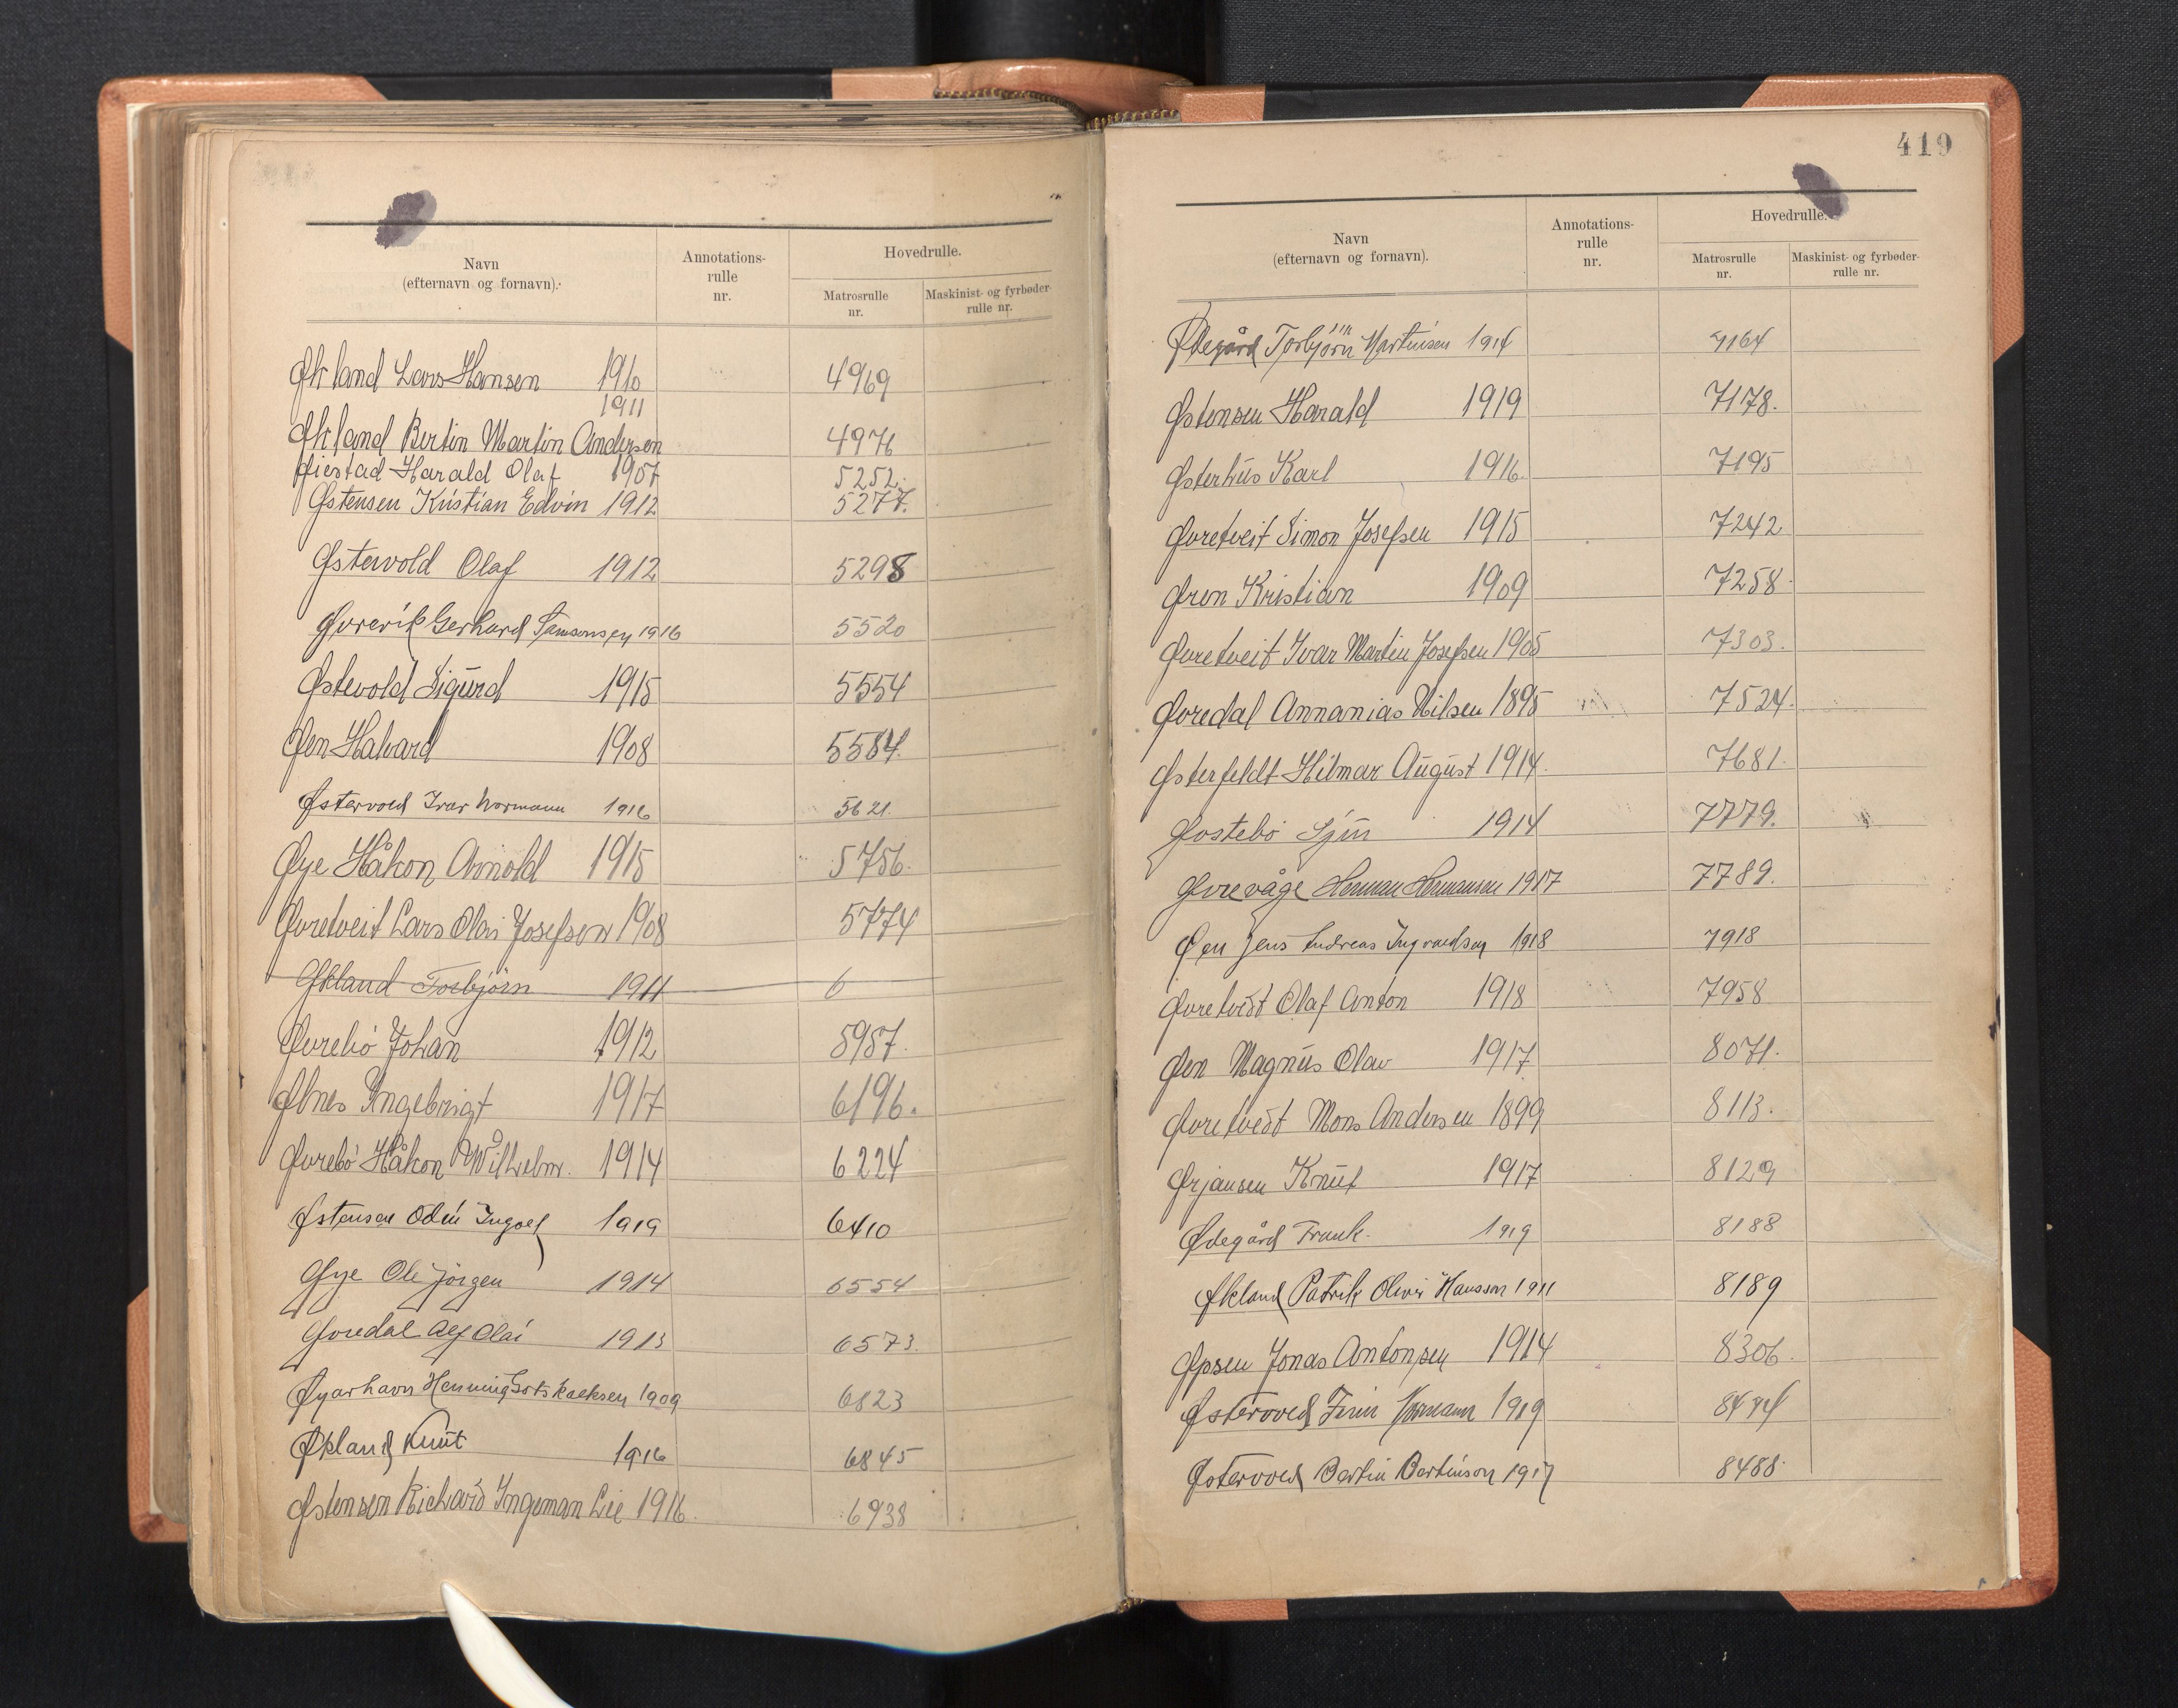 Navn
(efternavn og fornavn).
Annotations-
rulle
nr.
Hovedrulle.
Matrosrulle
nr.
Maskinist- og fyrbøder-
rulle nr.
Økland Lars Hansen 1910 4969
1911
Økland Bertin Martin Andersen 4976
Øiestad Harald Olaf 1907 5252.
Østensen Kristian Edvin 1912 5277.
Østervold Olaf 1912 5298
Øvrevik Gerhard Samsonsen 1916 5520
Østevold Sigurd 1915 5554
Øen Halvard 1908 5584.
Østervold Ivar Normann 1916 5621.
Øye Håkon Arnold 1915 5756.
Øvretveit Lars Olai Josefsen 1908 5774
Økland Torbjörn 1911 6
Øvrebö Johan 1912 5987.
Ølnes Ingebrigt 1917 6196.
Øvrebö Håkon Wilhelm. 1914 6224
Østensen Odin Ingolf 1919 6410
Øye Ole Jörgen 1914 6554
Øvredal Alf Olai 1913 6573.
Øyarhavn Henning 1909 6823
Økland Knut 1916 6845
Østensen Richard Ingeman Lie 1916. 6938
419
Navn
(efternavn og fornavn).
Annotations-
rulle
nr.
Hovedrulle.
Matrosrulle
nr.
Maskinist- og fyrbøder-
rulle nr.
Ødegård Torbjörn Martinsen 1914 7164
Østensen Harald 1919 7178.
Østerhus Karl 1916. 7195
Øvretveit Simon Josefsen 1915 7242
Øren Kristian 1909 7258.
Øvretveit Ivar Martin Josefsen 1905 7303.
Øvredal Annanias Nilsen 1895 7524.
Østerfeldt Hilmar August 1914. 7681.
Øvstebö 1914 7779.
Øvrevåge Herman Hermansen 1917 7789.
Øen Jens Andreas Ingvaldsen 1918 7918
Øvretvedt Olaf Anton 1918 7958
Øen Magnus Olav 1917 8071.
Øvretvedt Mons Andersen 1899 8113.
Ørjansen Knut 1917 8129
Ødegård Frank. 1919 8188
Økland Patrik Oliver Hansson 1911 8189
Øpsen Jonas Antonsen 1914 8306.
Østervold Finn Normann 1919 8474
Østervold Bertin Bertinson 1917 8488.